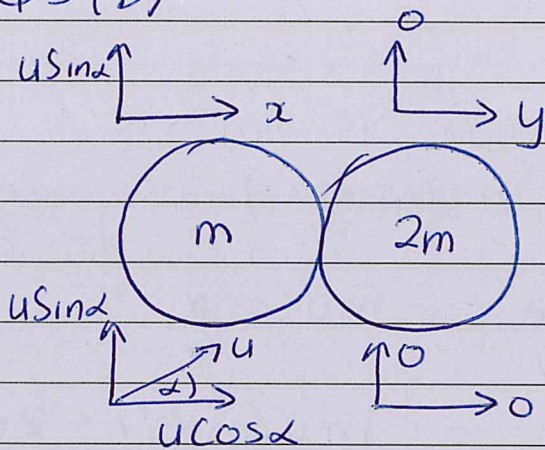 0
usinα
x
y
m
2m
usinα
u
α
0
ucosα
0